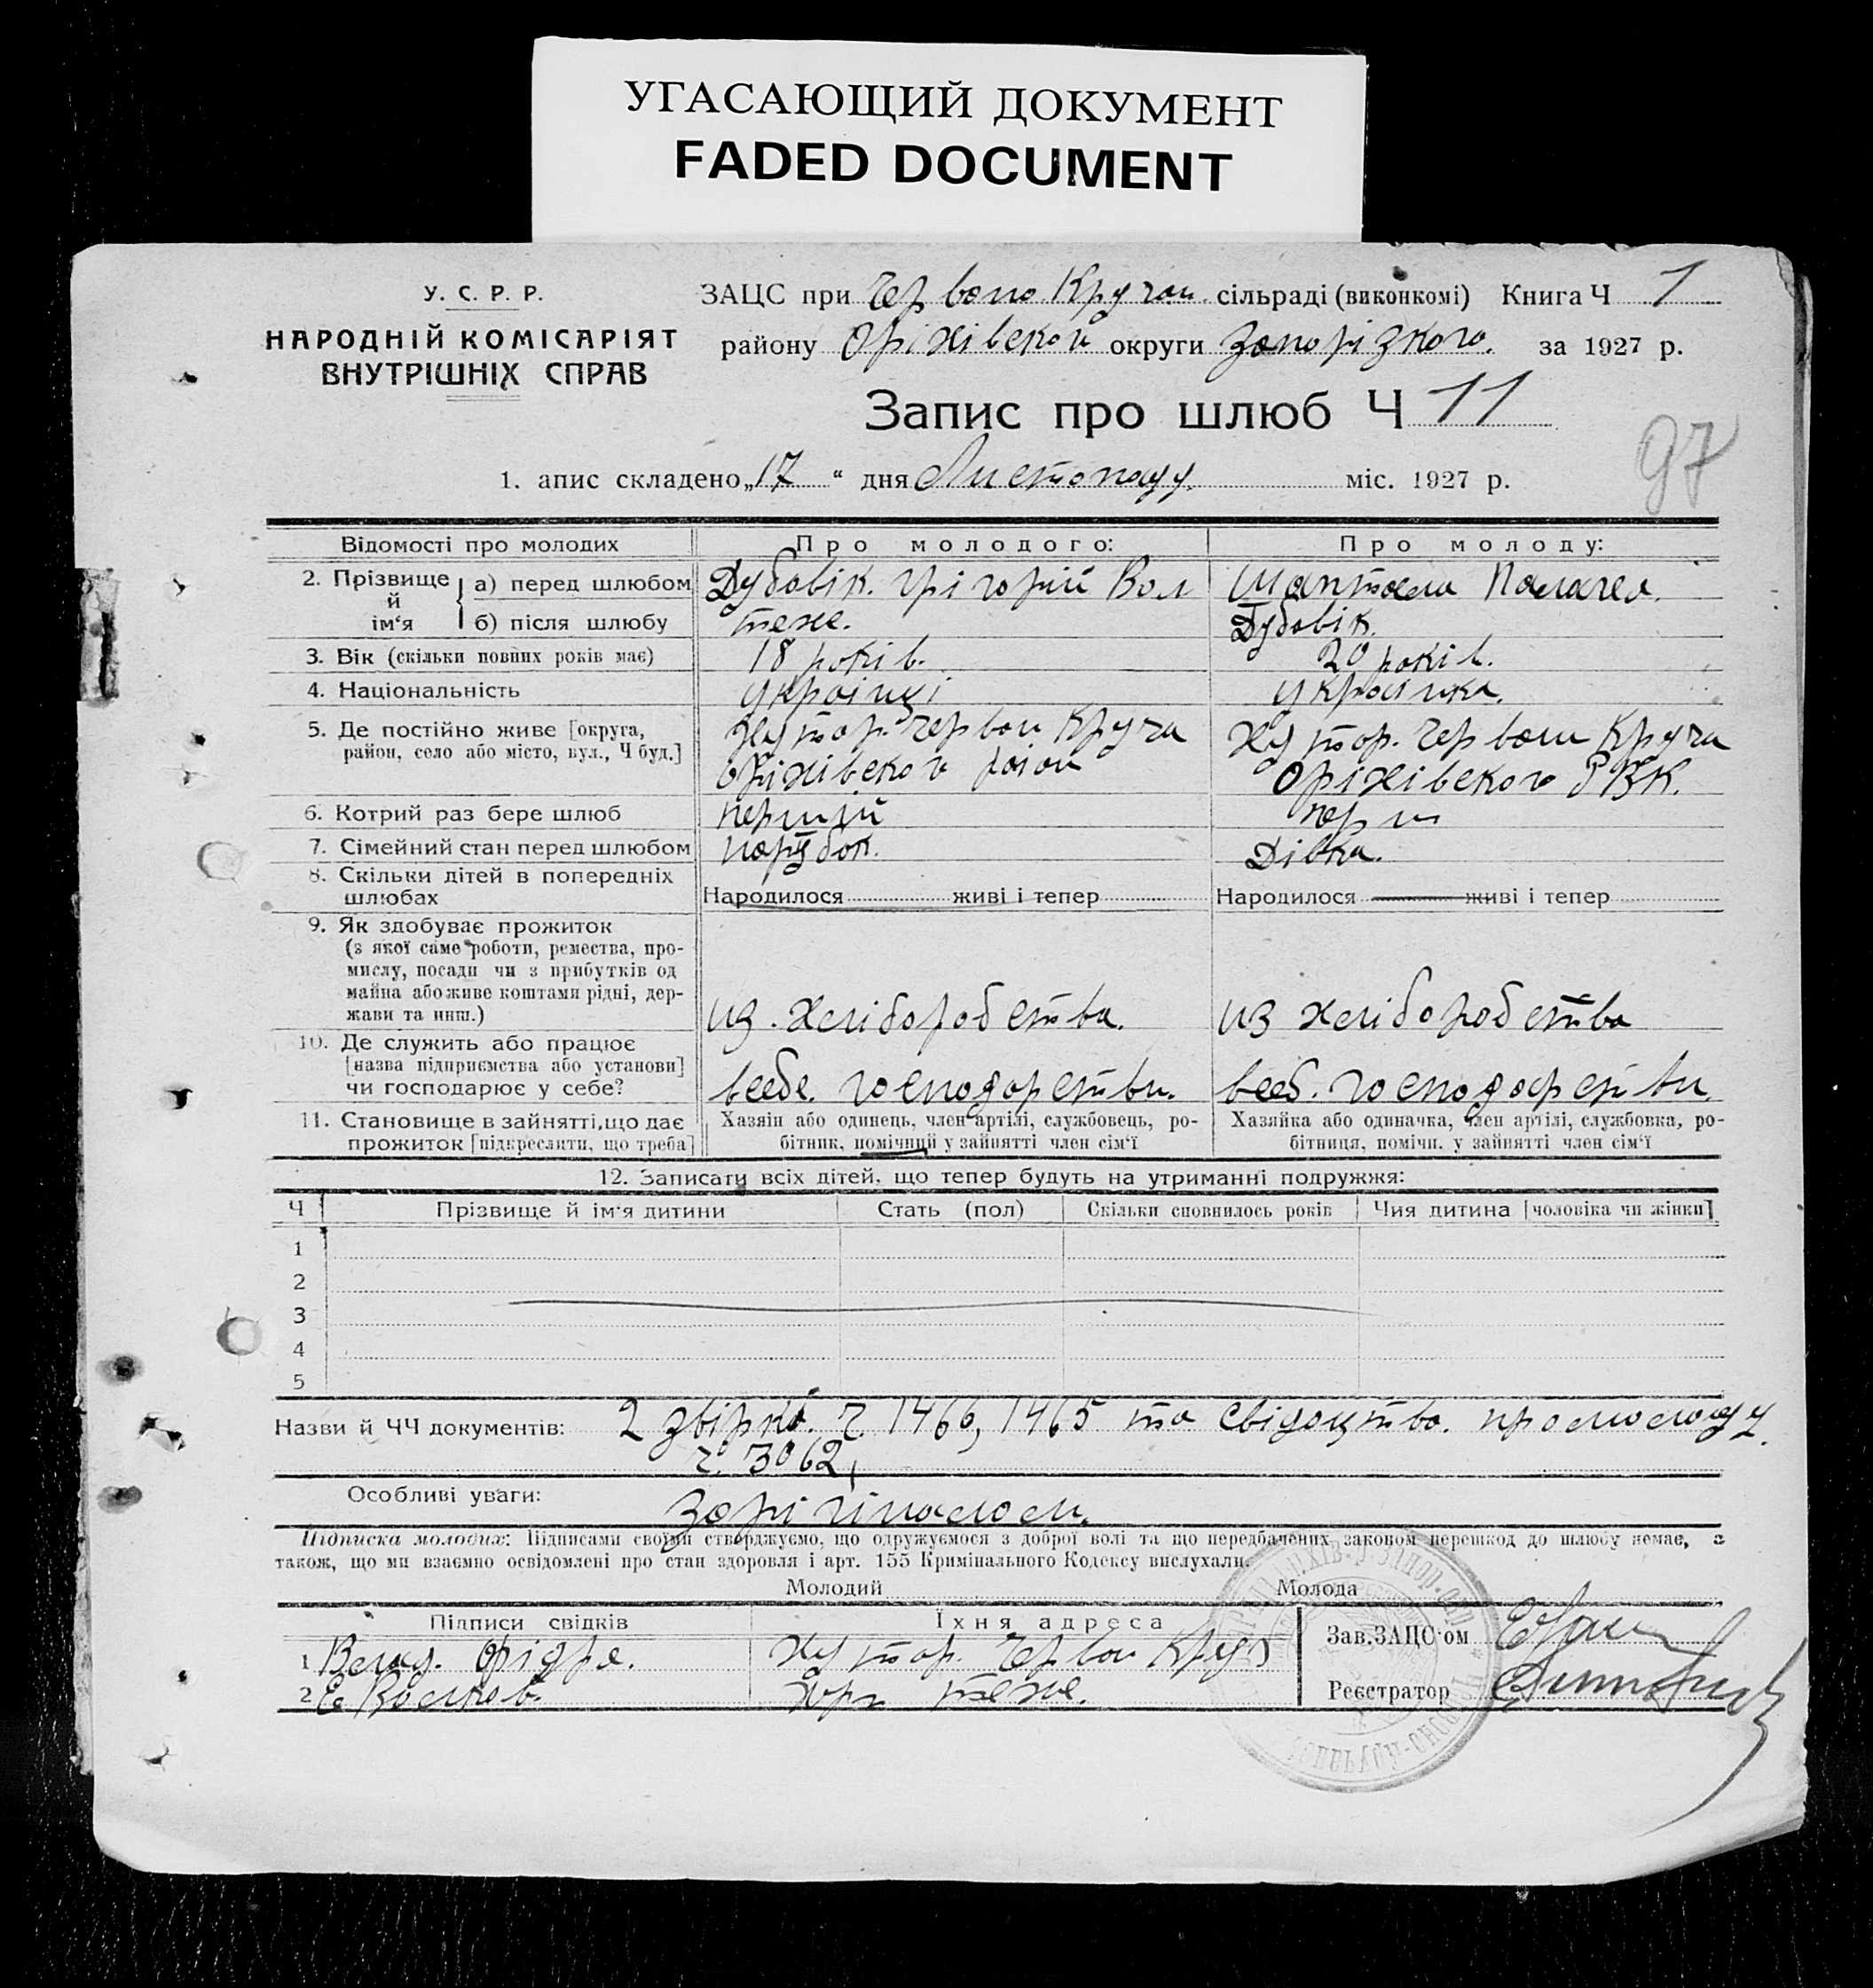 УГАСАЮЩИЙ ДОКУМЕНТ
FADED DOCUMENT
У. С. Р. Р.
НАРОДНІЙ КОМІСАРІЯТ
ВНУТРІШНІХ СПРАВ
ЗАЦС при Червоно Кручан. сільраді (виконкомі) Книга Ч 1
району Оріхівског округи Запорізкого. за 1927 р.
Запис про шлюб Ч 11
97
1. апис складено „17“ дня Листопаду. міс. 1927 р.
Відомості про молодих Про молодого: Про молоду:
2. Прізвище й ім‘я а) перед шлюбом Дубовік. Грігорій Вол Шаптала Палагея.
б) після шлюбу теже. Дубовік.
3. Вік (скільки повних років має) 18 років. 20 років.
4. Національність українці українка.
5. Де постійно живе [округа, район, село або місто, вул., Ч буд.] Хутор. Червон Круча Хутор. Червон Круча
Оріхівского район Оріхівского РВК.
6. Котрий раз бере шлюб перший перш
7. Сімейний стан перед шлюбом парубок. Дівка.
8. Скільки дітей в попередніх шлюбах Народилося живі і тепер Народилося живі і тепер
9. Як здобуває прожиток
(з якої саме роботи, ремества, про-
мислу, посади чи з прибутків од
майна або живе коштами рідні, дер-
жави та инш.) из. хліборобства. из хліборобства
10. Де служить або працює
[назва підприємства або установи]
чи господарює у себе? всебе. господарстви. всеб. господарстви.
11. Становище в зайнятті, що дає
прожиток [підкреслити, що треба]
Хазяін або одинець, член артілі, службовець, ро-
бітник, помічний у зайнятті член сім‘ї
Хазяйка або одиначка, член артілі, службовка, ро-
бітниця, помічн. у зайнятті член сім‘ї
12. Записати всіх дітей, що тепер будуть на утриманні подружжя:
Ч Прізвище й ім‘я дитини Стать (пол) Скільки сповнилось років Чия дитина [чоловіка чи жінки]
1
2
3
4
5
Назви й ЧЧ документів: 2 збірка. ч. 1466, 1465 та свідоцтво. про
ч. 3062,
Особливі уваги: зорігіналом.
Підписка молодих: Підписами своїми стверджуємо, що одружуємося з доброї волі та що передбачених законом перешкод до шлюбу немає, а
також, що ми взаємно освідомлені про стан здоровля і арт. 155 Кримінального Кодексу вислухали.
Молодий Молода
Підписи свідків Їхня адреса
1 Фрідре. Хутор. Червон Круч Зав. ЗАЦС‘ом
2 Є Волков. теже. Реєстратор